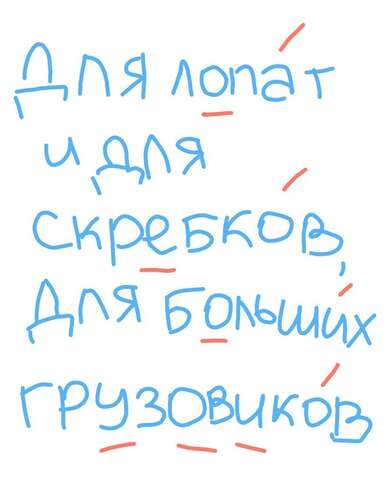 для лопат
и для
скребков,
для больших
грузовиков